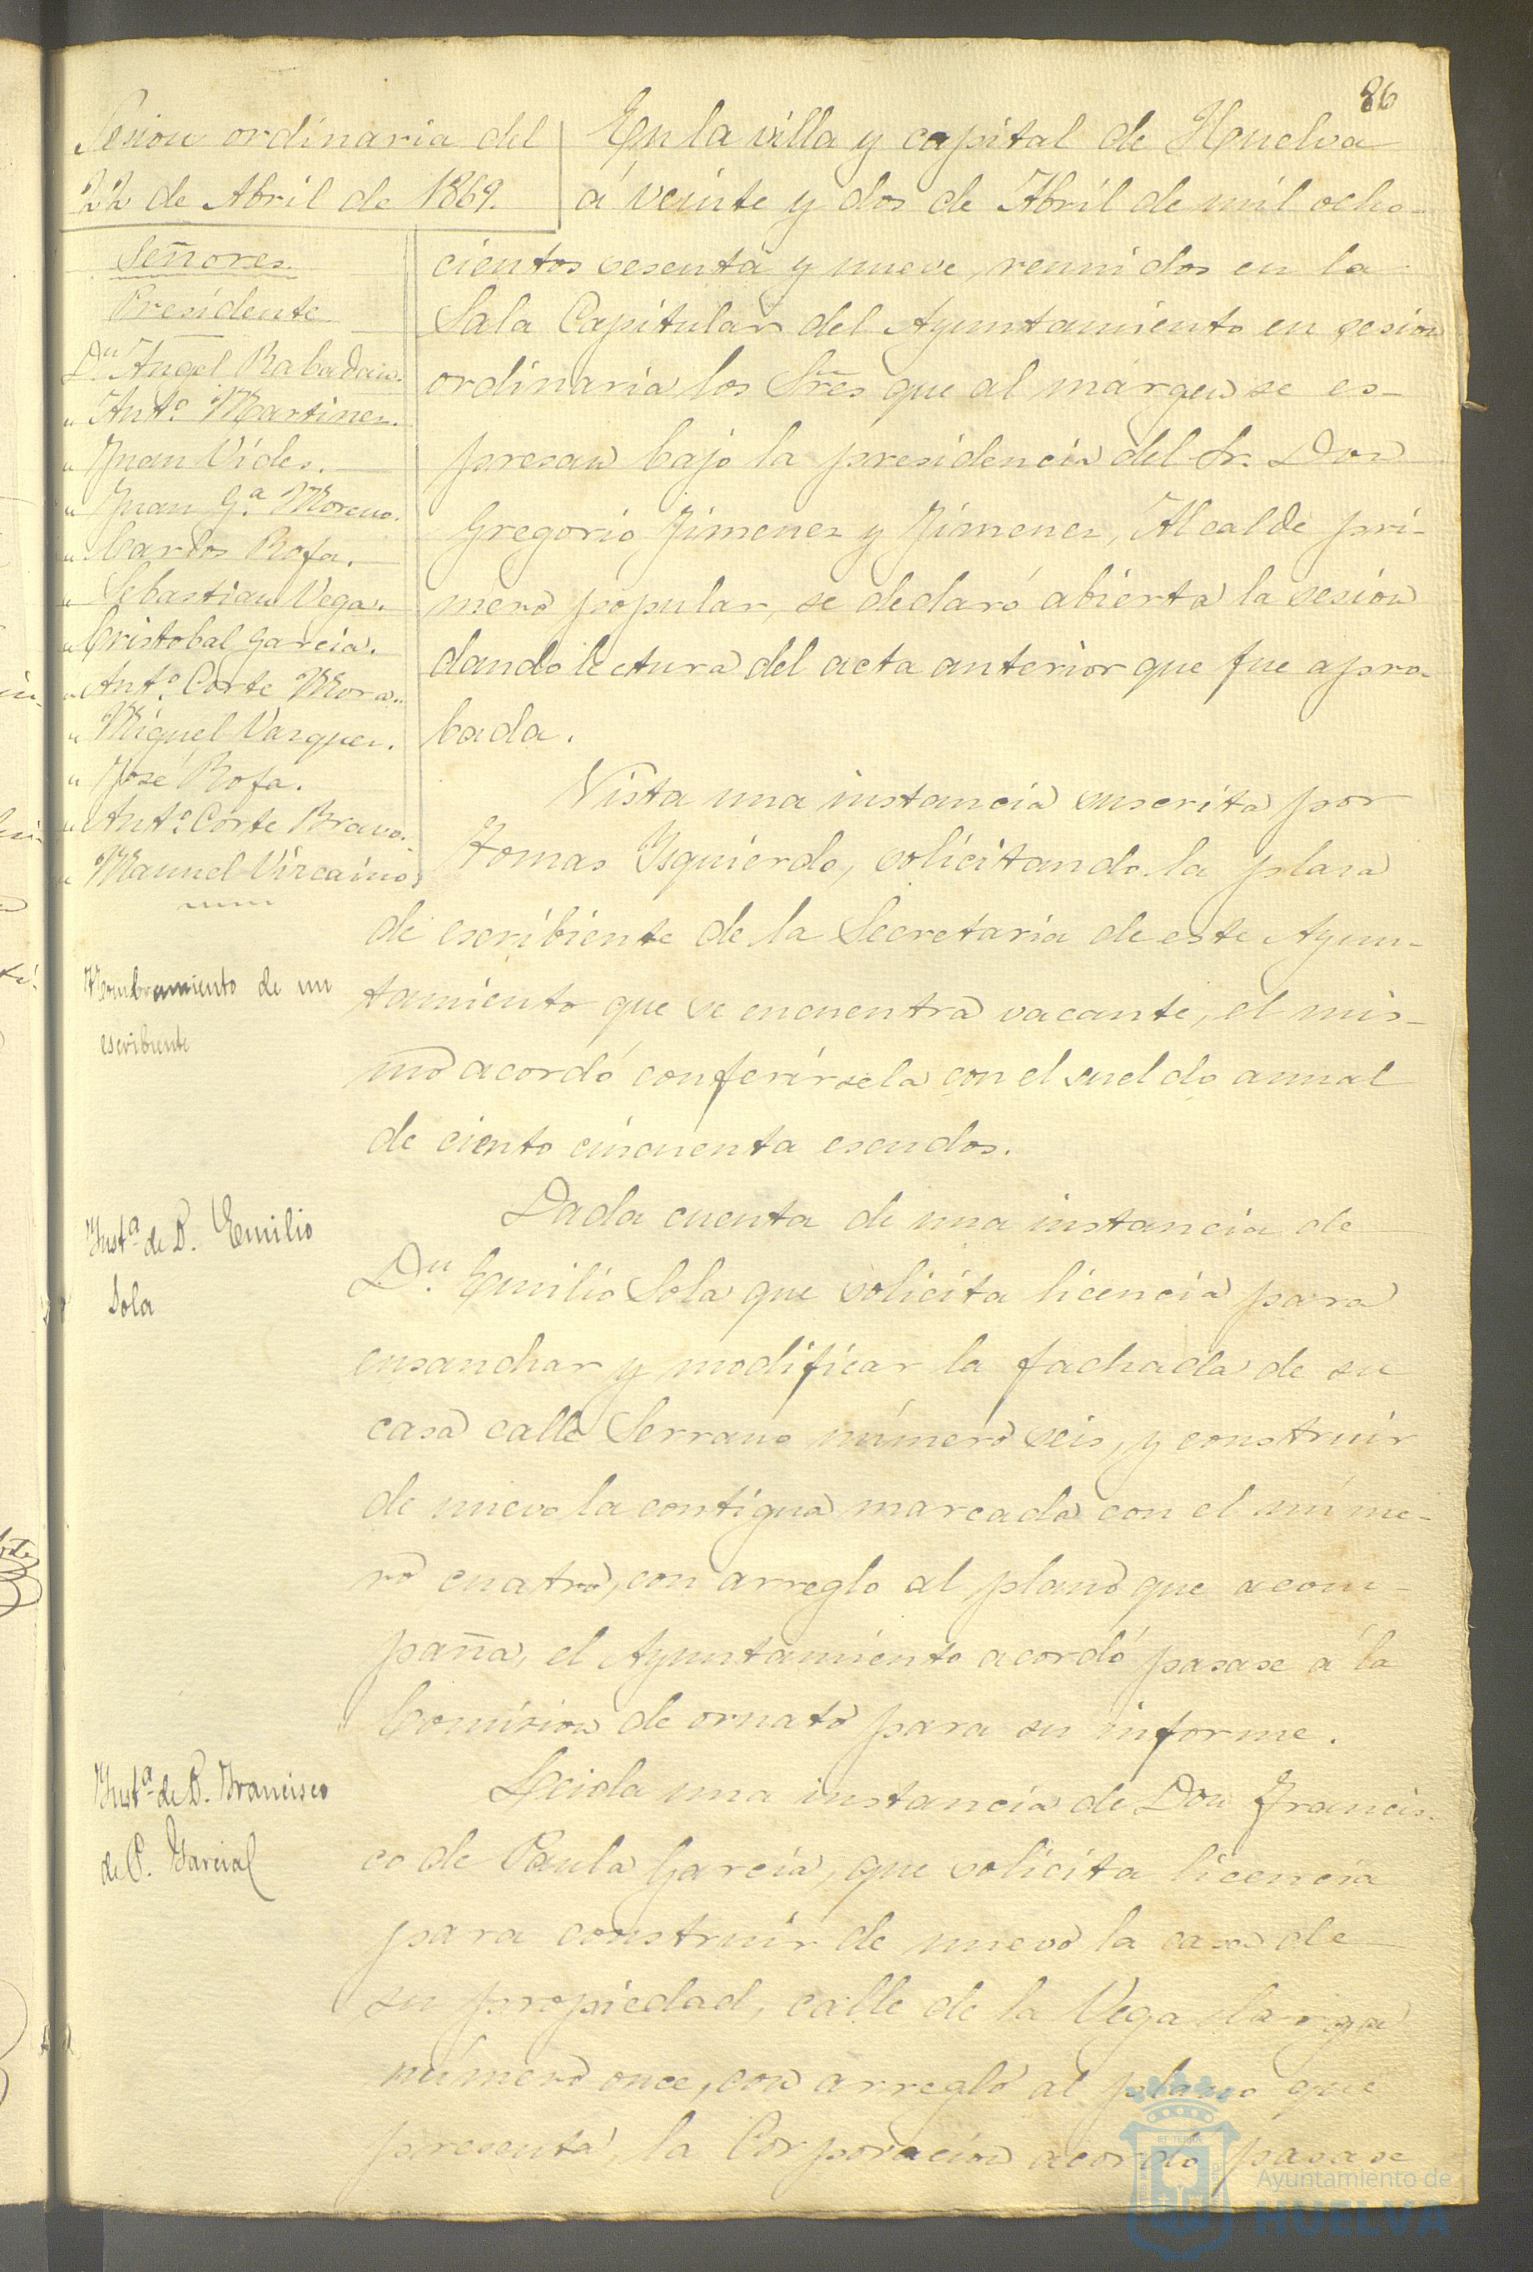 86
Sesion ordinaria del
22 de Abril de 1869.
Señores.
Presidente
Dn. Angel Rabadan.
" Antº Martinez.
" Juan Vides.
" Juan Gª Moreno.
" Carlos Rofa.
" Sebastian Vega.
" Cristobal Garcia.
" Antº Corte Mora.
" Miguel Vazquez.
" José Rofa.
" Antº Corte Bravo.
" Manuel Vizcaino
En la villa y capital de Huelva
á veinte y dos de Abril de mil ocho-
cientos sesenta y nueve, reunidos en la
Sala Capitular del Ayuntamiento en sesion
ordinaria los Sres que al margen se es-
presan bajo la presidencia del Sr. Don
Gregorio Jimenez y Jimenez, Alcalde pri-
mero popular, se declaró abierta la sesion
dando lectura del acta anterior que fue apro-
bada.
Nombramiento de un
escribiente
Vista una instancia suscrita por
Tomas Izquierdo, solicitando la plaza
de escribiente de la Secretaria de este Ayun-
tamiento que se encuentra vacante, el mis-
mo acordó conferírsela con el sueldo anual
de ciento cincuenta escudos.
Instª de D. Emilio
Sola
Dada cuenta de una instancia de
Dn. Emilio Sola que solicita licencia para
ensanchar y modificar la fachada de su
casa calle Serrano número seis, y construir
de nuevo la contigua marcada con el núme-
ro cuatro, con arreglo al plano que acom-
paña, el Ayuntamiento acordó pasase á la
Comision de ornato para su informe.
Instª de D. Francisco
de P. Garcia
Leida una instancia de Don Francis-
co de Paula Garcia, que solicita licencia
para construir de nuevo la casa de
su propiedad, calle de la Vega larga
número once, con arreglo al plano que
presenta, la Corporacion acordó pasase
Ayuntamiento de
HUELVA